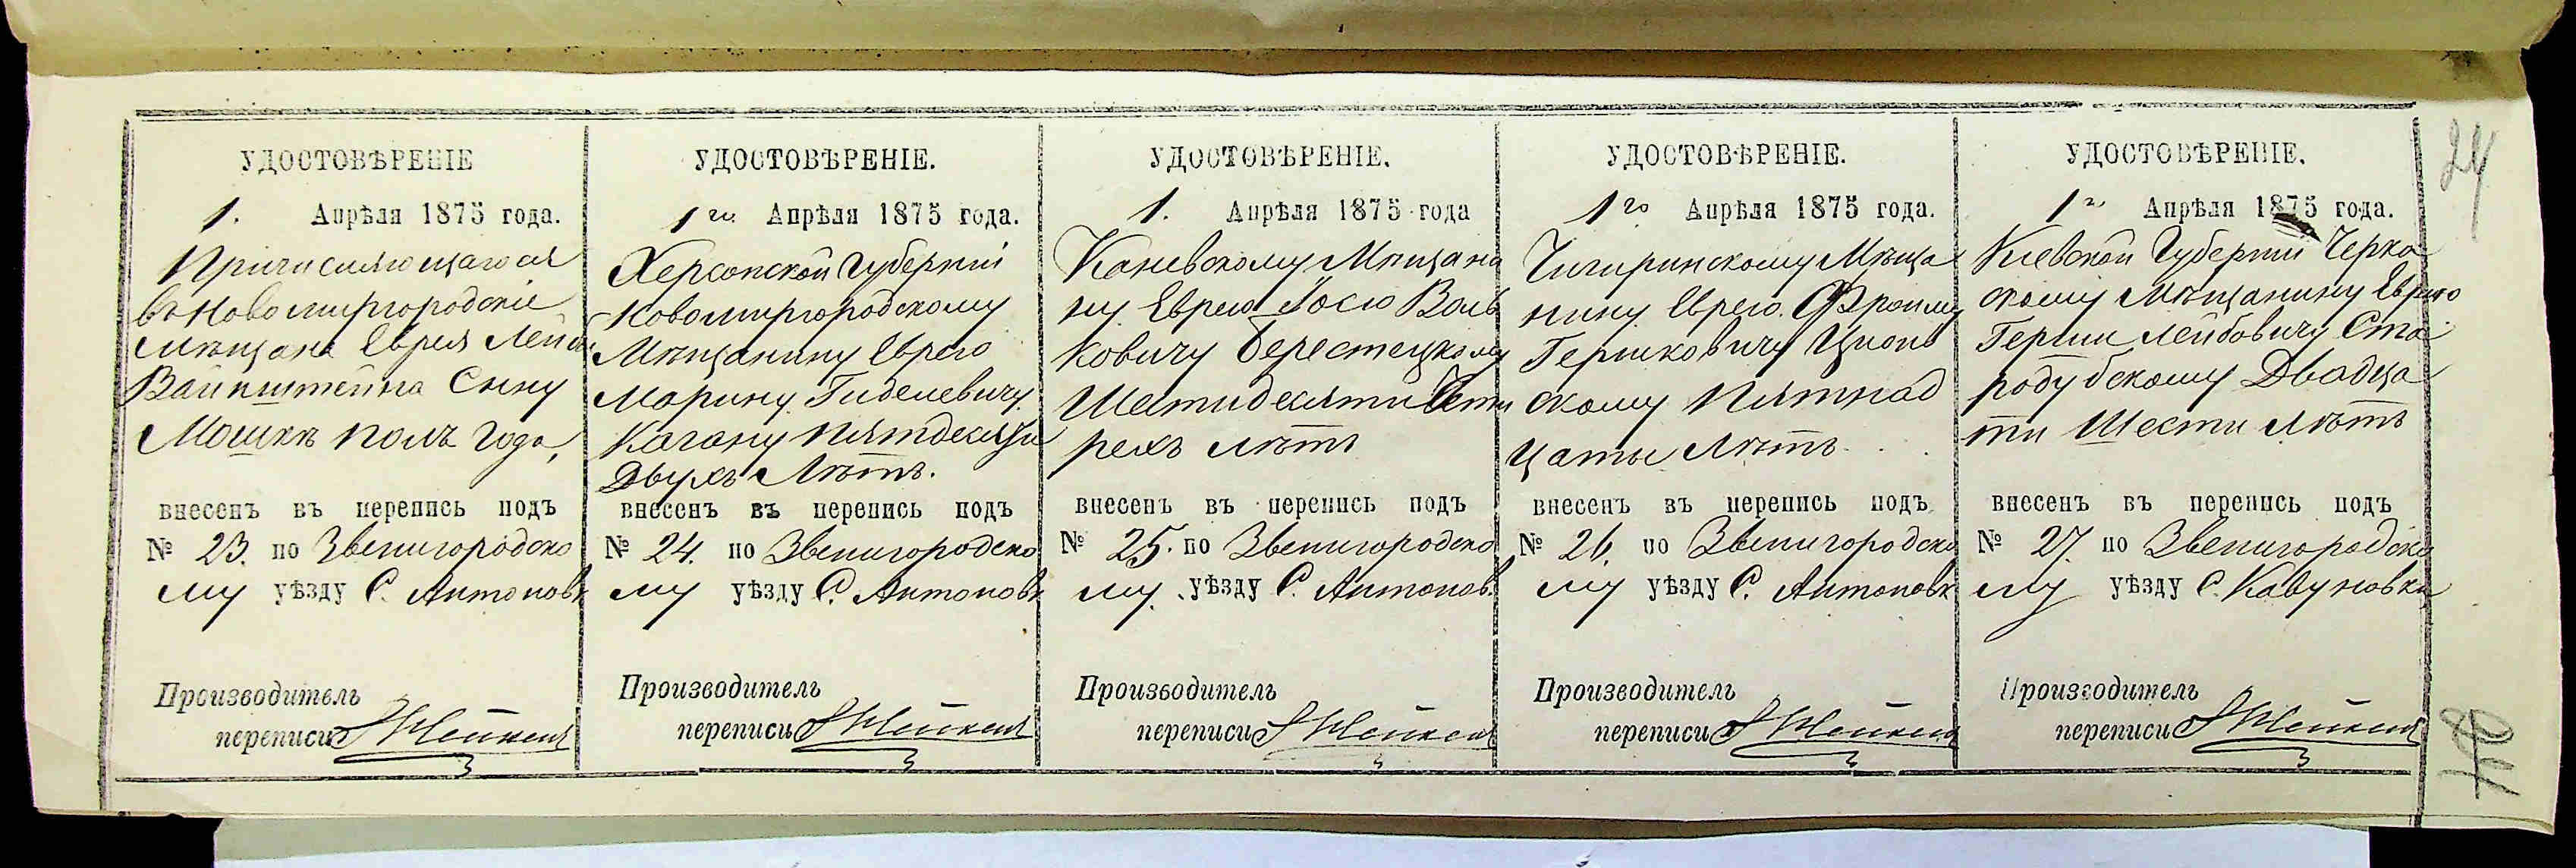 УДОСТОВѢРЕНІЕ
1. Апрѣля 1875 года.
Причисляющагося
въ Новомиргородскіе
Мѣщане Еврея Лейбы
Вайнштейна Сыну
Мошкѣ полъ года,
внесенъ въ перепись подъ
№ 23. по Звенигородско
му уѣзду С. Антоновк
Производитель
переписи
УДОСТОВѢРЕНІЕ.
1го Апрѣля 1875 года.
Херсонской Губерніи
Новомиргородскому
Мѣщанину Еврею
Марину Гиделевичу
Кагану пятдесяти
Двухъ Лѣтъ.
внесенъ въ перепись подъ
№ 24. по Звенигородско
му уѣзду С. Антоновк
Производитель
переписи
УДОСТОВѢРЕНІЕ.
1. Апрѣля 1875 года
Каневскому Мѣщани
ну Еврею Іосю Воль
ковичу Берестецкому
Шестидесяти Четы
рехъ лѣтъ
внесенъ въ перепись подъ
№ 25. по Звенигородско
му. уѣзду С. Антонов.
Производитель
переписи
УДОСТОВѢРЕНІЕ.
1го Апрѣля 1875 года.
Чигиринскому Мѣща
нину Еврею Фроиму
Гершковичу Ционь
скому Пятнад
цаты лѣтъ.
внесенъ въ перепись подъ
№ 26. по Звенигородско
му уѣзду С. Антоновк
Производитель
переписи
УДОСТОВѢРЕНІЕ.
1го Апрѣля 1875 года.
Кіевской Губерніи Черка
скому Мѣщанину Еврею
Герши Лейбовичу Ста
родубскому Двадца
ти Шести лѣтъ
внесенъ въ перепись подъ
№ 27. по Звенигородско
му уѣзду С. Кавуновка
Производитель
переписи
24